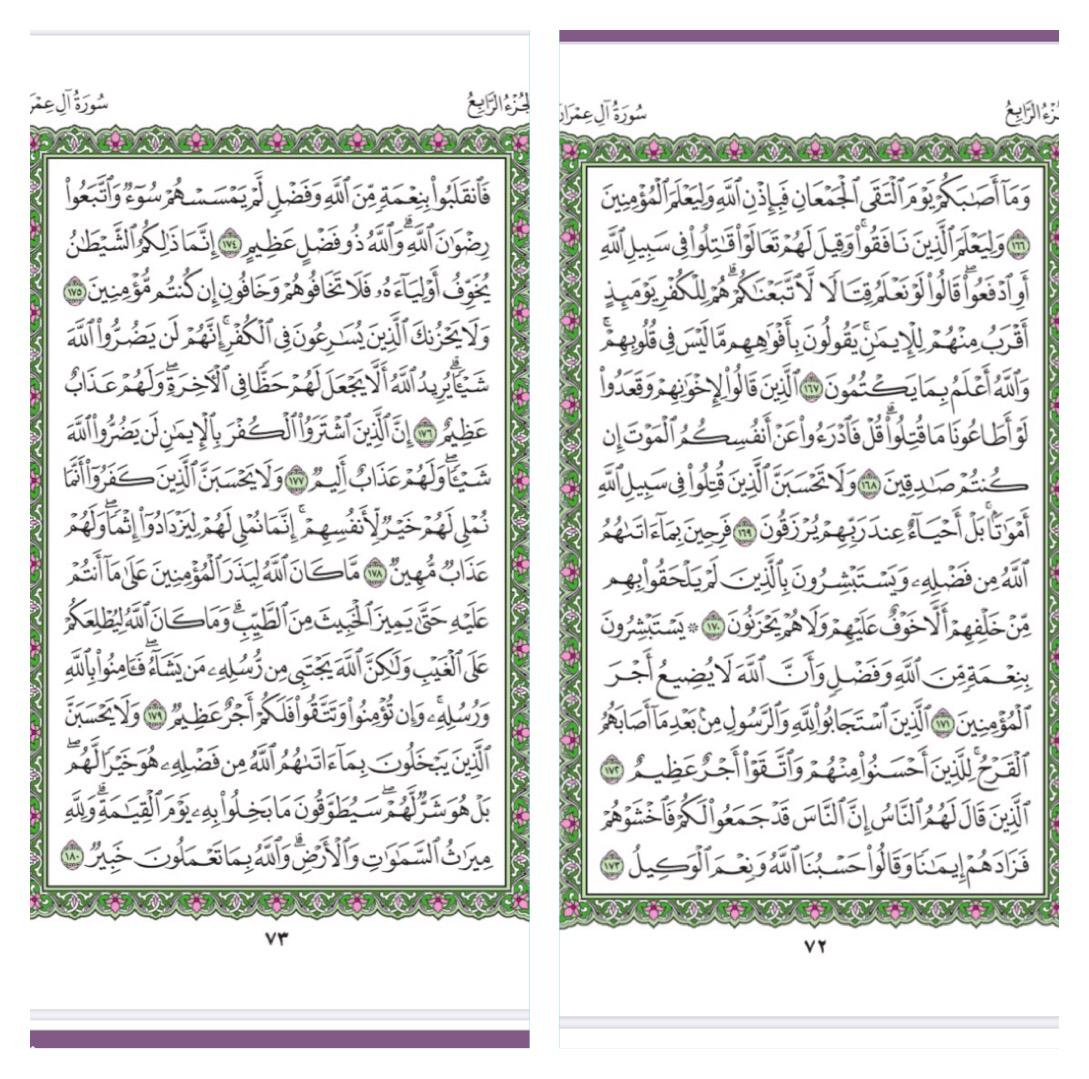 الجُزْءُ الرَّابِعُ
سُورَةُ آلِ عِمْرَانَ
وَمَآ أَصَٰبَكُمْ يَوْمَ ٱلْتَقَى ٱلْجَمْعَانِ فَبِإِذْنِ ٱللَّهِ وَلِيَعْلَمَ ٱلْمُؤْمِنِينَ
١٦٦ وَلِيَعْلَمَ ٱلَّذِينَ نَافَقُوا۟ۚ وَقِيلَ لَهُمْ تَعَالَوْا۟ قَٰتِلُوا۟ فِى سَبِيلِ ٱللَّهِ
أَوِ ٱدْفَعُوا۟ۖ قَالُوا۟ لَوْ نَعْلَمُ قِتَالًا لَّٱتَّبَعْنَٰكُمْۗ هُمْ لِلْكُفْرِ يَوْمَئِذٍ
أَقْرَبُ مِنْهُمْ لِلْإِيمَٰنِۚ يَقُولُونَ بِأَفْوَٰهِهِم مَّا لَيْسَ فِى قُلُوبِهِمْۚ
وَٱللَّهُ أَعْلَمُ بِمَا يَكْتُمُونَ ١٦٧ ٱلَّذِينَ قَالُوا۟ لِإِخْوَٰنِهِمْ وَقَعَدُوا۟
لَوْ أَطَاعُونَا مَا قُتِلُوا۟ۗ قُلْ فَٱدْرَءُوا۟ عَنْ أَنفُسِكُمُ ٱلْمَوْتَ إِن
كُنتُمْ صَٰدِقِينَ ١٦٨ وَلَا تَحْسَبَنَّ ٱلَّذِينَ قُتِلُوا۟ فِى سَبِيلِ ٱللَّهِ
أَمْوَٰتًۢاۚ بَلْ أَحْيَآءٌ عِندَ رَبِّهِمْ يُرْزَقُونَ ١٦٩ فَرِحِينَ بِمَآ ءَاتَىٰهُمُ
ٱللَّهُ مِن فَضْلِهِۦ وَيَسْتَبْشِرُونَ بِٱلَّذِينَ لَمْ يَلْحَقُوا۟ بِهِم
مِّنْ خَلْفِهِمْ أَلَّا خَوْفٌ عَلَيْهِمْ وَلَا هُمْ يَحْزَنُونَ ١٧٠ ۞ يَسْتَبْشِرُونَ
بِنِعْمَةٍ مِّنَ ٱللَّهِ وَفَضْلٍ وَأَنَّ ٱللَّهَ لَا يُضِيعُ أَجْرَ
ٱلْمُؤْمِنِينَ ١٧١ ٱلَّذِينَ ٱسْتَجَابُوا۟ لِلَّهِ وَٱلرَّسُولِ مِنۢ بَعْدِ مَآ أَصَابَهُمُ
ٱلْقَرْحُۚ لِلَّذِينَ أَحْسَنُوا۟ مِنْهُمْ وَٱتَّقَوْا۟ أَجْرٌ عَظِيمٌ ١٧٢
ٱلَّذِينَ قَالَ لَهُمُ ٱلنَّاسُ إِنَّ ٱلنَّاسَ قَدْ جَمَعُوا۟ لَكُمْ فَٱخْشَوْهُمْ
فَزَادَهُمْ إِيمَٰنًا وَقَالُوا۟ حَسْبُنَا ٱللَّهُ وَنِعْمَ ٱلْوَكِيلُ ١٧٣
٧٢
الجُزْءُ الرَّابِعُ
سُورَةُ آلِ عِمْرَانَ
فَٱنقَلَبُوا۟ بِنِعْمَةٍ مِّنَ ٱللَّهِ وَفَضْلٍ لَّمْ يَمْسَسْهُمْ سُوٓءٌ وَٱتَّبَعُوا۟
رِضْوَٰنَ ٱللَّهِۗ وَٱللَّهُ ذُو فَضْلٍ عَظِيمٍ ١٧٤ إِنَّمَا ذَٰلِكُمُ ٱلشَّيْطَٰنُ
يُخَوِّفُ أَوْلِيَآءَهُۥ فَلَا تَخَافُوهُمْ وَخَافُونِ إِن كُنتُم مُّؤْمِنِينَ ١٧٥
وَلَا يَحْزُنكَ ٱلَّذِينَ يُسَٰرِعُونَ فِى ٱلْكُفْرِۚ إِنَّهُمْ لَن يَضُرُّوا۟ ٱللَّهَ
شَيْـًٔاۗ يُرِيدُ ٱللَّهُ أَلَّا يَجْعَلَ لَهُمْ حَظًّا فِى ٱلْءَاخِرَةِۖ وَلَهُمْ عَذَابٌ
عَظِيمٌ ١٧٦ إِنَّ ٱلَّذِينَ ٱشْتَرَوُا۟ ٱلْكُفْرَ بِٱلْإِيمَٰنِ لَن يَضُرُّوا۟ ٱللَّهَ
شَيْـًٔاۖ وَلَهُمْ عَذَابٌ أَلِيمٌ ١٧٧ وَلَا يَحْسَبَنَّ ٱلَّذِينَ كَفَرُوٓا۟ أَنَّمَا
نُمْلِى لَهُمْ خَيْرٌ لِّأَنفُسِهِمْۚ إِنَّمَا نُمْلِى لَهُمْ لِيَزْدَادُوٓا۟ إِثْمًاۖ وَلَهُمْ
عَذَابٌ مُّهِينٌ ١٧٨ مَّا كَانَ ٱللَّهُ لِيَذَرَ ٱلْمُؤْمِنِينَ عَلَىٰ مَآ أَنتُمْ
عَلَيْهِ حَتَّىٰ يَمِيزَ ٱلْخَبِيثَ مِنَ ٱلطَّيِّبِۗ وَمَا كَانَ ٱللَّهُ لِيُطْلِعَكُمْ
عَلَى ٱلْغَيْبِ وَلَٰكِنَّ ٱللَّهَ يَجْتَبِى مِن رُّسُلِهِۦ مَن يَشَآءُۖ فَـَٔامِنُوا۟ بِٱللَّهِ
وَرُسُلِهِۦۚ وَإِن تُؤْمِنُوا۟ وَتَتَّقُوا۟ فَلَكُمْ أَجْرٌ عَظِيمٌ ١٧٩ وَلَا يَحْسَبَنَّ
ٱلَّذِينَ يَبْخَلُونَ بِمَآ ءَاتَىٰهُمُ ٱللَّهُ مِن فَضْلِهِۦ هُوَ خَيْرًا لَّهُمۖ
بَلْ هُوَ شَرٌّ لَّهُمْۖ سَيُطَوَّقُونَ مَا بَخِلُوا۟ بِهِۦ يَوْمَ ٱلْقِيَٰمَةِۗ وَلِلَّهِ
مِيرَٰثُ ٱلسَّمَٰوَٰتِ وَٱلْأَرْضِۗ وَٱللَّهُ بِمَا تَعْمَلُونَ خَبِيرٌ ١٨٠
٧٣